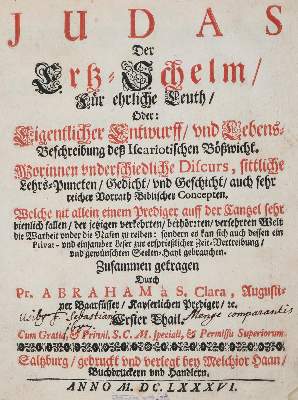 JUDAS
Der
Ertz-Schelm/
Für ehrliche Leuth/
Oder:
Eigentlicher Entwurff/ vnd Lebens-
Beschreibung deß Iscariotischen Bößwicht.
Worinnen vnderschiedliche Discurs, sittliche
Lehrs-Puncten/ Gedicht/ vnd Geschicht/ auch sehr
reicher Vorrath Biblischer Concepten.
Welche nit allein einem Prediger auff der Cantzel sehr
dienlich fallen/ der jetzigen verkehrten/ bethörrten/ versehrten Welt
die Warheit vnder die Nasen zu reiben: sondern es kan sich auch dessen ein
Privat- vnd einsamber Leser zur ersprießlicher Zeit-Vertreibung/
vnd gewünschten Seelen-Hayl gebrauchen.
Zusammen getragen
Durch
Pr. ABRAHAM à S. Clara, Augusti-
ner Baarfüsser/ Kayserlichen Prediger/ ꝛc.
Erster Thail.
Sebastian Menge comparantis
Cum Gratia, & Privil. S. C. M. speciali, & Permissu Superiorum.
Saltzburg/ gedruckt vnd verlegt bey Melchior Haan/
Buchdruckern vnd Handlern.
ANNO M. DC. LXXXVI.